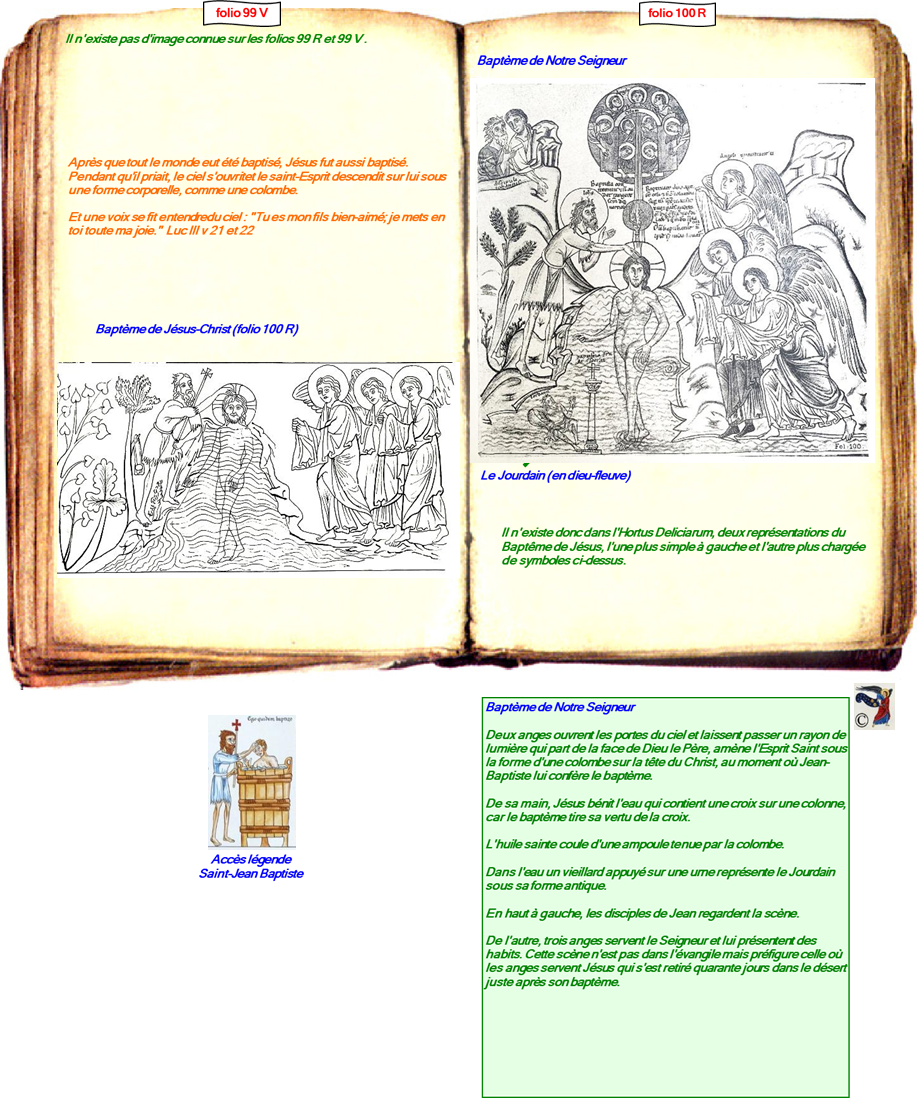 folio 99 V
Il n'existe pas d'image connue sur les folios 99 R et 99 V .
Après que tout le monde eut été baptisé, Jésus fut aussi baptisé.
Pendant qu'il priait, le ciel s'ouvritet le saint-Esprit descendit sur lui sous
une forme corporelle, comme une colombe.
Et une voix se fit entendredu ciel : "Tu es mon fils bien-aimé; je mets en
toi toute ma joie." Luc III v 21 et 22
Baptème de Jésus-Christ (folio 100 R)
folio 100 R
Baptème de Notre Seigneur
Fol. 100.
Le Jourdain (en dieu-fleuve)
Il n'existe donc dans l'Hortus Deliciarum, deux représentations du
Baptême de Jésus, l'une plus simple à gauche et l'autre plus chargée
de symboles ci-dessus.
Accès légende
Saint-Jean Baptiste
©
Baptème de Notre Seigneur
Deux anges ouvrent les portes du ciel et laissent passer un rayon de
lumière qui part de la face de Dieu le Père, amène l'Esprit Saint sous
la forme d'une colombe sur la tête du Christ, au moment où Jean-
Baptiste lui confère le baptème.
De sa main, Jésus bénit l'eau qui contient une croix sur une colonne,
car le baptème tire sa vertu de la croix.
L'huile sainte coule d'une ampoule tenue par la colombe.
Dans l'eau un vieillard appuyé sur une urne représente le Jourdain
sous sa forme antique.
En haut à gauche, les disciples de Jean regardent la scène.
De l'autre, trois anges servent le Seigneur et lui présentent des
habits. Cette scène n'est pas dans l'évangile mais préfigure celle où
les anges servent Jésus qui s'est retiré quarante jours dans le désert
juste après son baptème.